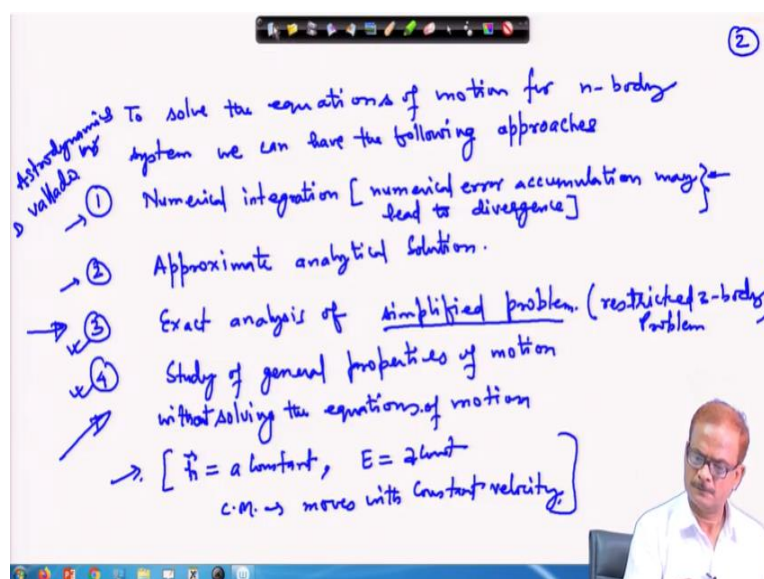 ②
To solve the equations of motion for n-body
system we can have the following approaches
Astrodynamics
by
D Vallado
① Numerical integration [numerical error accumulation may
lead to divergence]
② Approximate analytical solution.
③ Exact analysis of simplified problem. (restricted 2-body
Problem
④ Study of general properties of motion
without solving the equations of motion
[ h⃗ = a constant, E = a const
C.M. → moves with constant velocity. ]